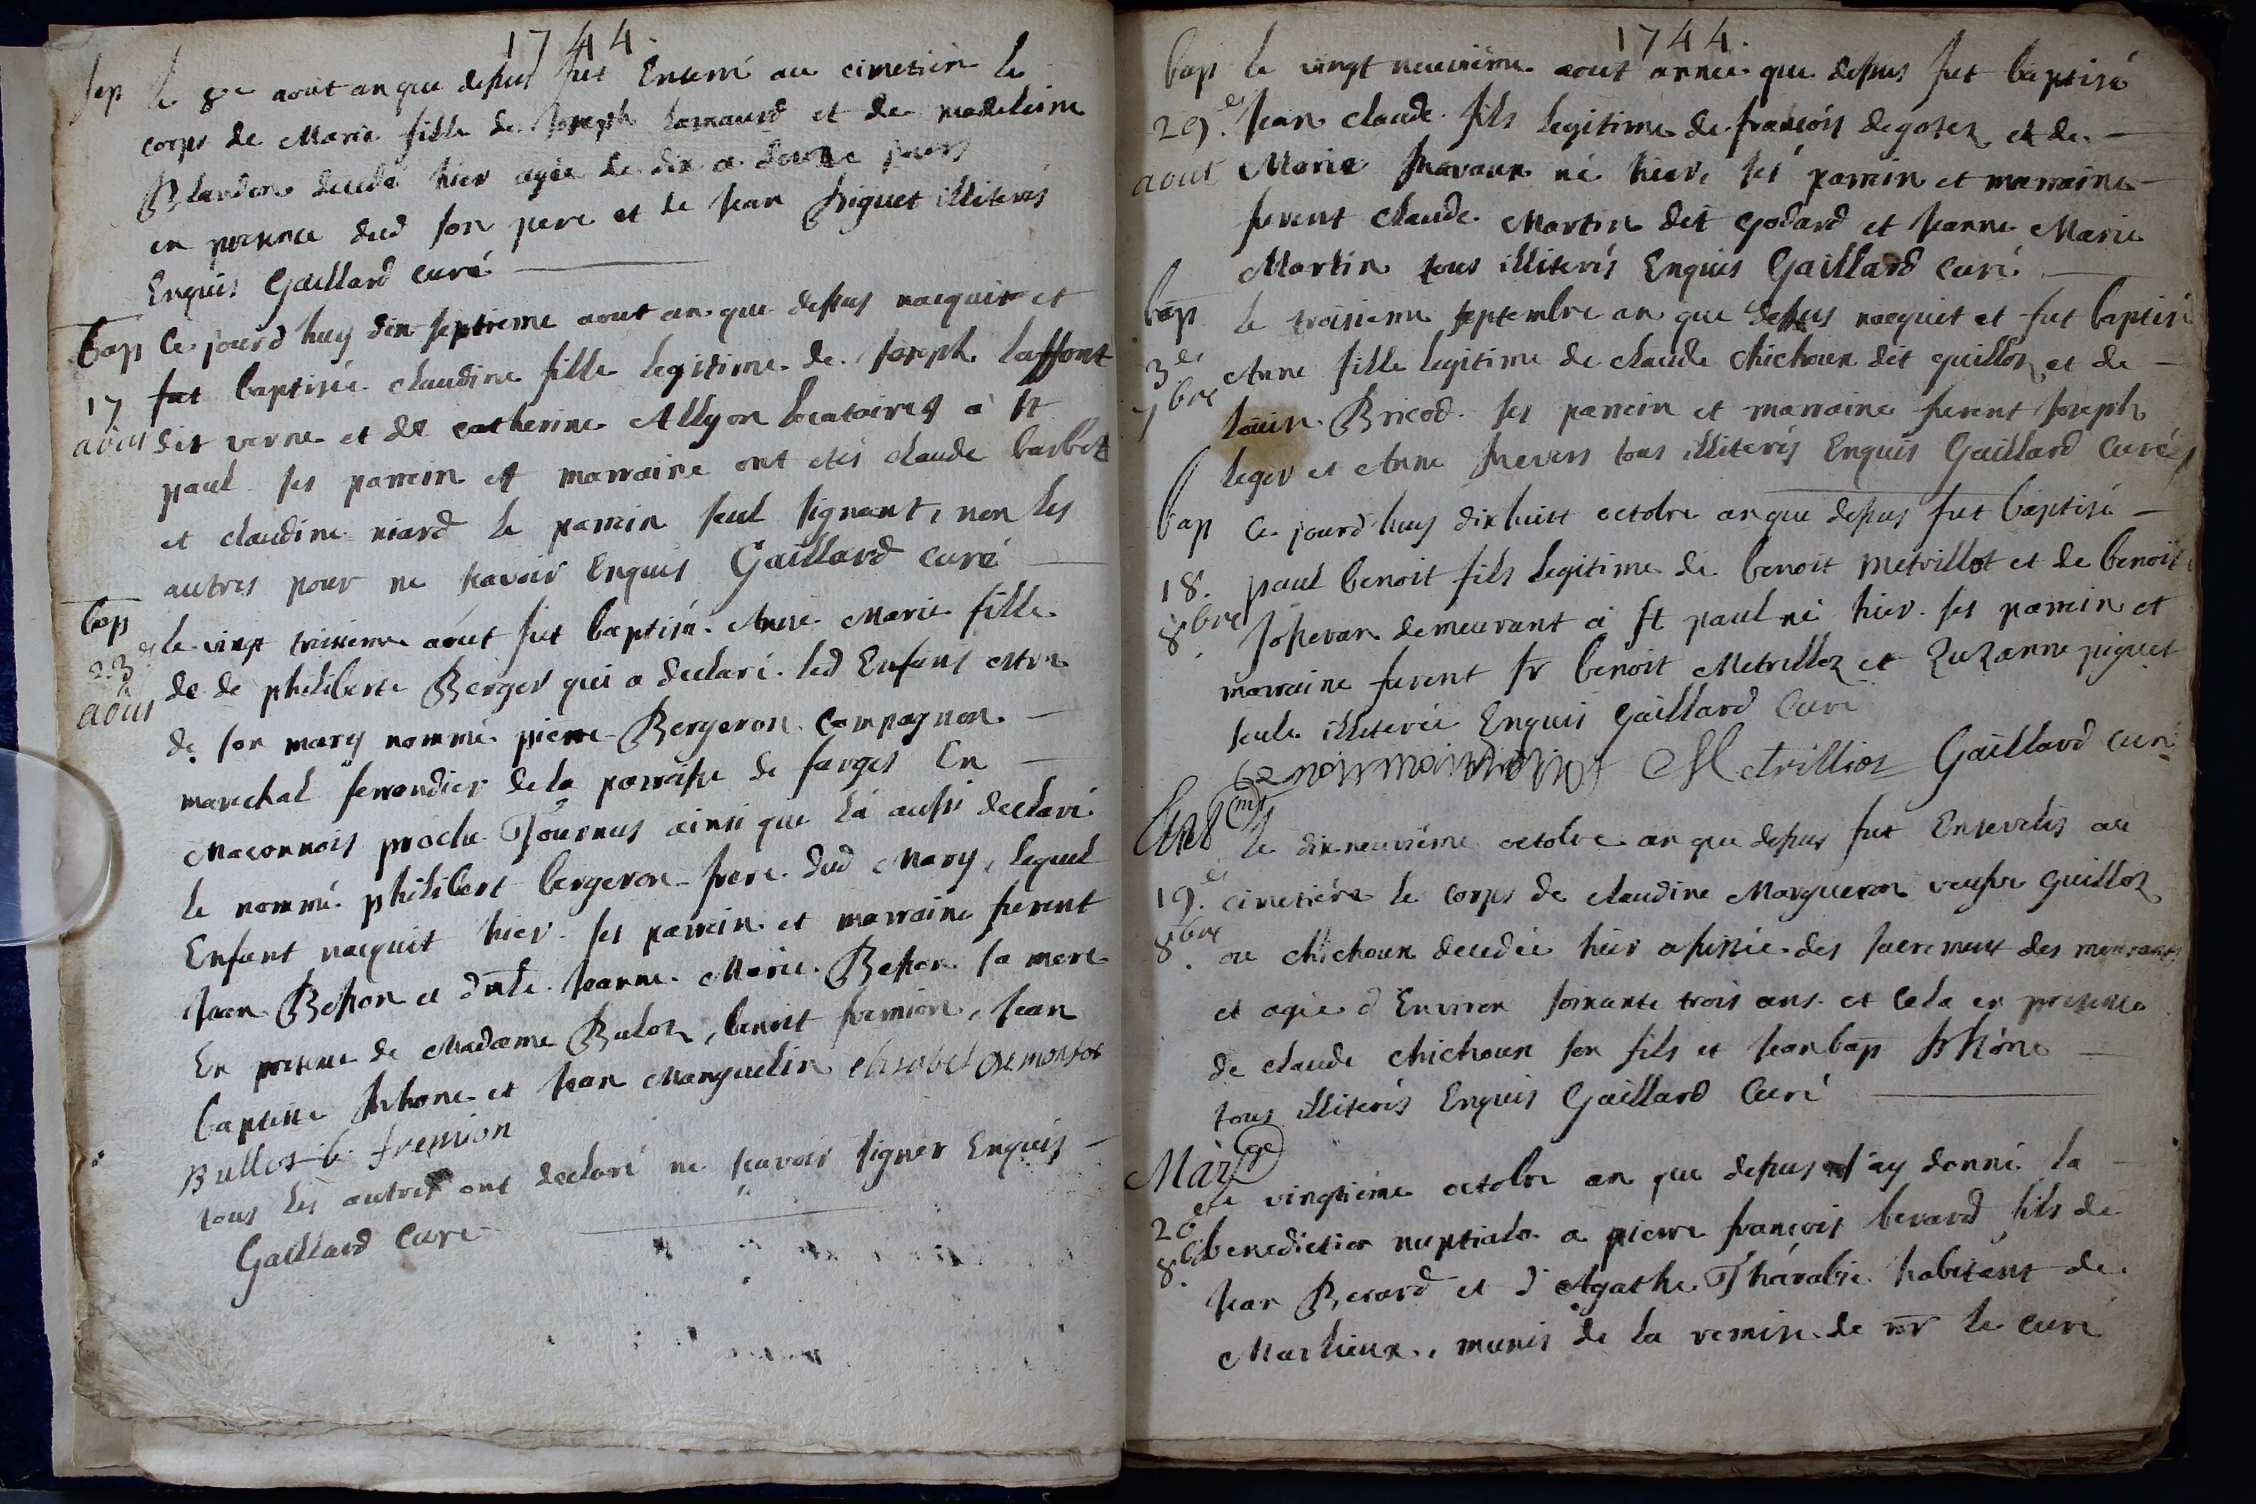 1744.
Sep le 8e aout an que dessus fut Enterré au cimetiere le
corps de Marie fille de Joseph Lamaurd et de madeleine
Blandon decedé hier agée de dix a douze jours
en presence dud son pere et de Jean Piguet illiterés
Enquis Gaillard curé
bap Ce jourd huy dix septieme aout an que dessus nacquit et
17 fut baptisée claudine fille legitime de Joseph Laffont
aout dit verne et de catherine Allyon locataires a St
paul ses parrein et marraine ont etés claude barbet
et claudine niard le parrein seul signant, non les
autres pour ne scavoir Enquis Gaillard curé
bap le vingt troisieme aout fut baptisé Anne Marie fille
23e de de philiberte Berger qui a declaré led Enfant estre
aout de son mary nommé pierre Bergeron compagnon
marechal ferrandier de la parroisse de farges En
Maconnois proche Tournus ainsi que l'a aussi declaré
le nommé philibert bergeron frere dud Mary, lequel
Enfant nacquit hier ses parrein et marraine furent
Jean Besson et dmle Jeanne Marie Besson sa mere
En presence de Madame Buloz, benoit fremion, Jean
baptiste Jnhone et Jean Manguelin elisabet
Bulloz b fremion
tous les autres ont declaré ne scavoir signer Enquis
Gaillard Curé
1744.
bap le vingt neuvième aout année que dessus fut baptisé
29.e Jean claude fils legitime de françois degotez et de
aout Marie navaux né hier, ses parrein et marraine
furent claude Martin dit Godard et Jeanne Marie
Martin tous illiterés Enquis Gaillard curé
bap le troisieme septembre an que dessus nacquit et fut baptisé
3e Anne fille legitime de claude chichoux dit guilloz et de
7bre Bricod ses parrein et marraine furent Joseph
leger et Anne nevers tous illiterés Enquis Gaillard curé
bap Ce jourd huy dix huit octobre an que dessus fut baptisé
18. paul benoit fils legitime de benoit metrillot et de benoite
8bre Josseran demeurant a St paul né hier ses parrein et
marraine furent Sr benoit Metrilloz et Zuzanne piguet
seule illiterée Enquis Gaillard Curé
Metrillioz Gaillard curé
Entmt le dix neuvième octobre an que dessus fut Ensevelis au
19.e cimetière le corps de claudine Margueron veufve guilloz
8bre ou chichoux decedée hier assistée des sacrements des mourants
et agée d Environ soixante trois ans et cela en presence
de claude chichoux son fils et Jean bap
tous illiterés Enquis Gaillard Curé
Mariage
le vingtième octobre an que dessus J'ay donné la
20e benediction nuptiale a pierre françois berard fils de
8bre Jean Berard et d'Agathe Tharabie habitant de
Marlieux, munis de la remise de mr le curé